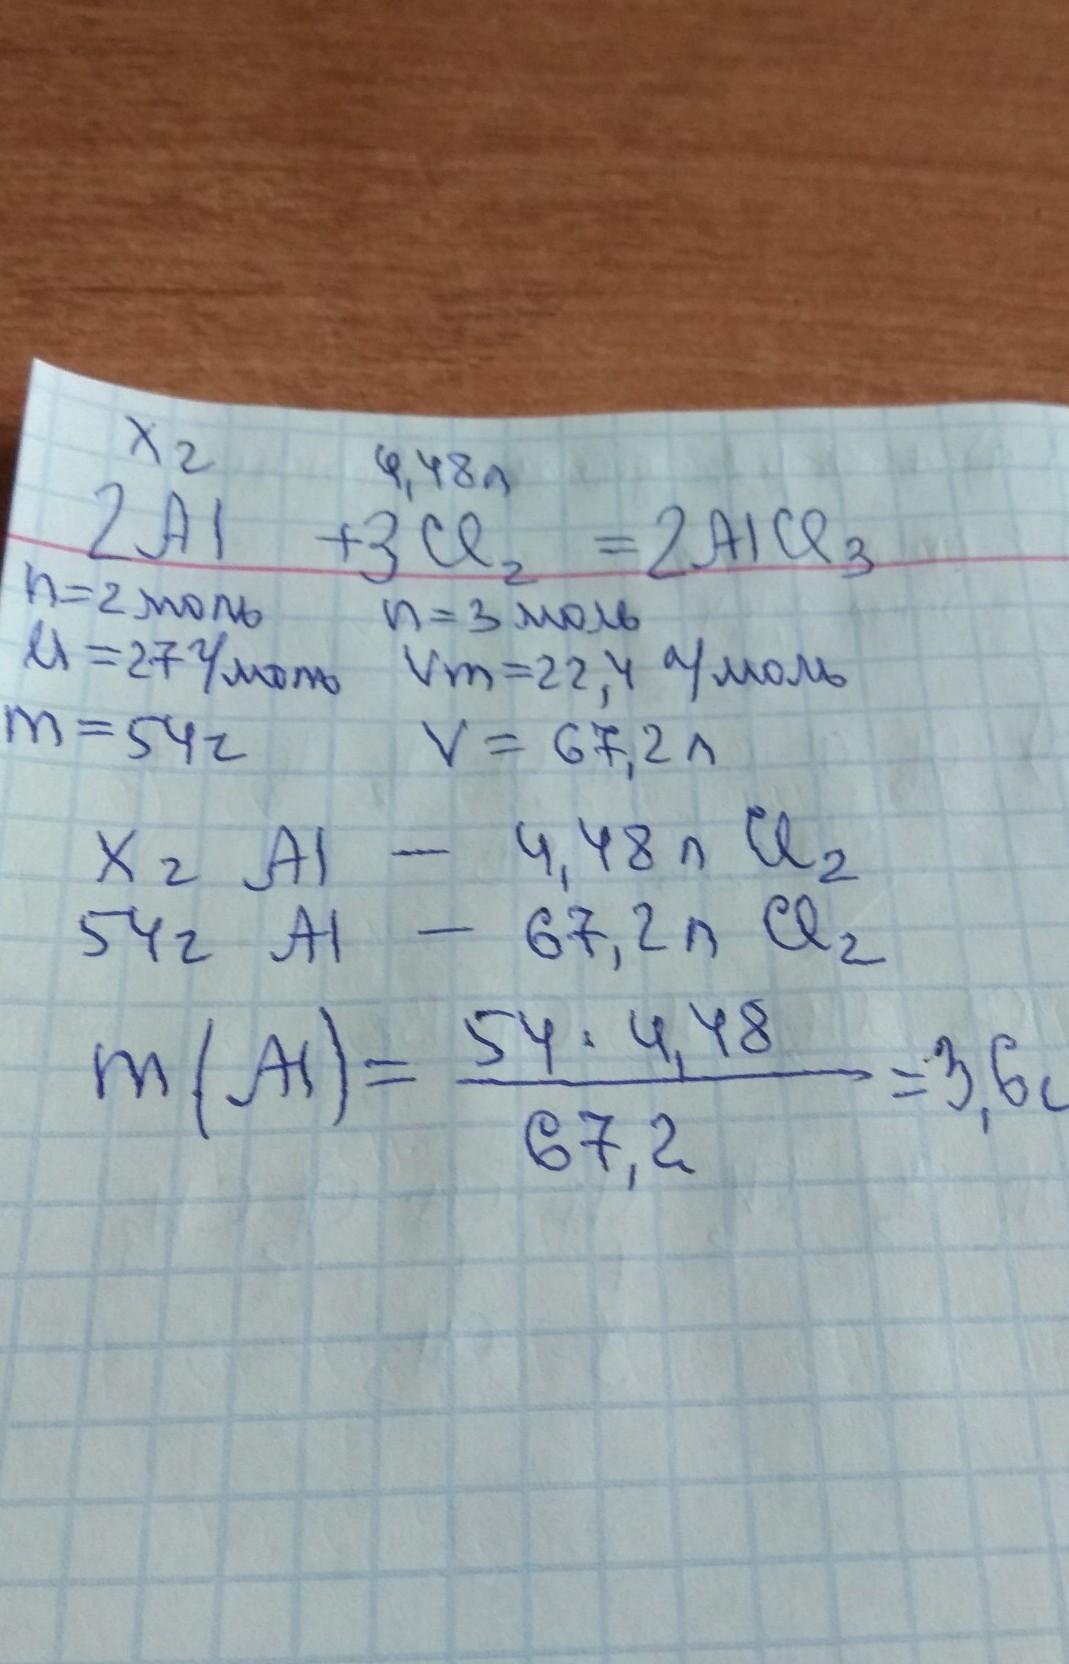 x г 4,48 л
2Al + 3Cl₂ = 2AlCl₃
n = 2 моль n = 3 моль
M = 27 г/моль Vm = 22,4 л/моль
m = 54 г V = 67,2 л
x г Al — 4,48 л Cl₂
54 г Al — 67,2 л Cl₂
m(Al) = 54 · 4,48 / 67,2 = 3,6 г